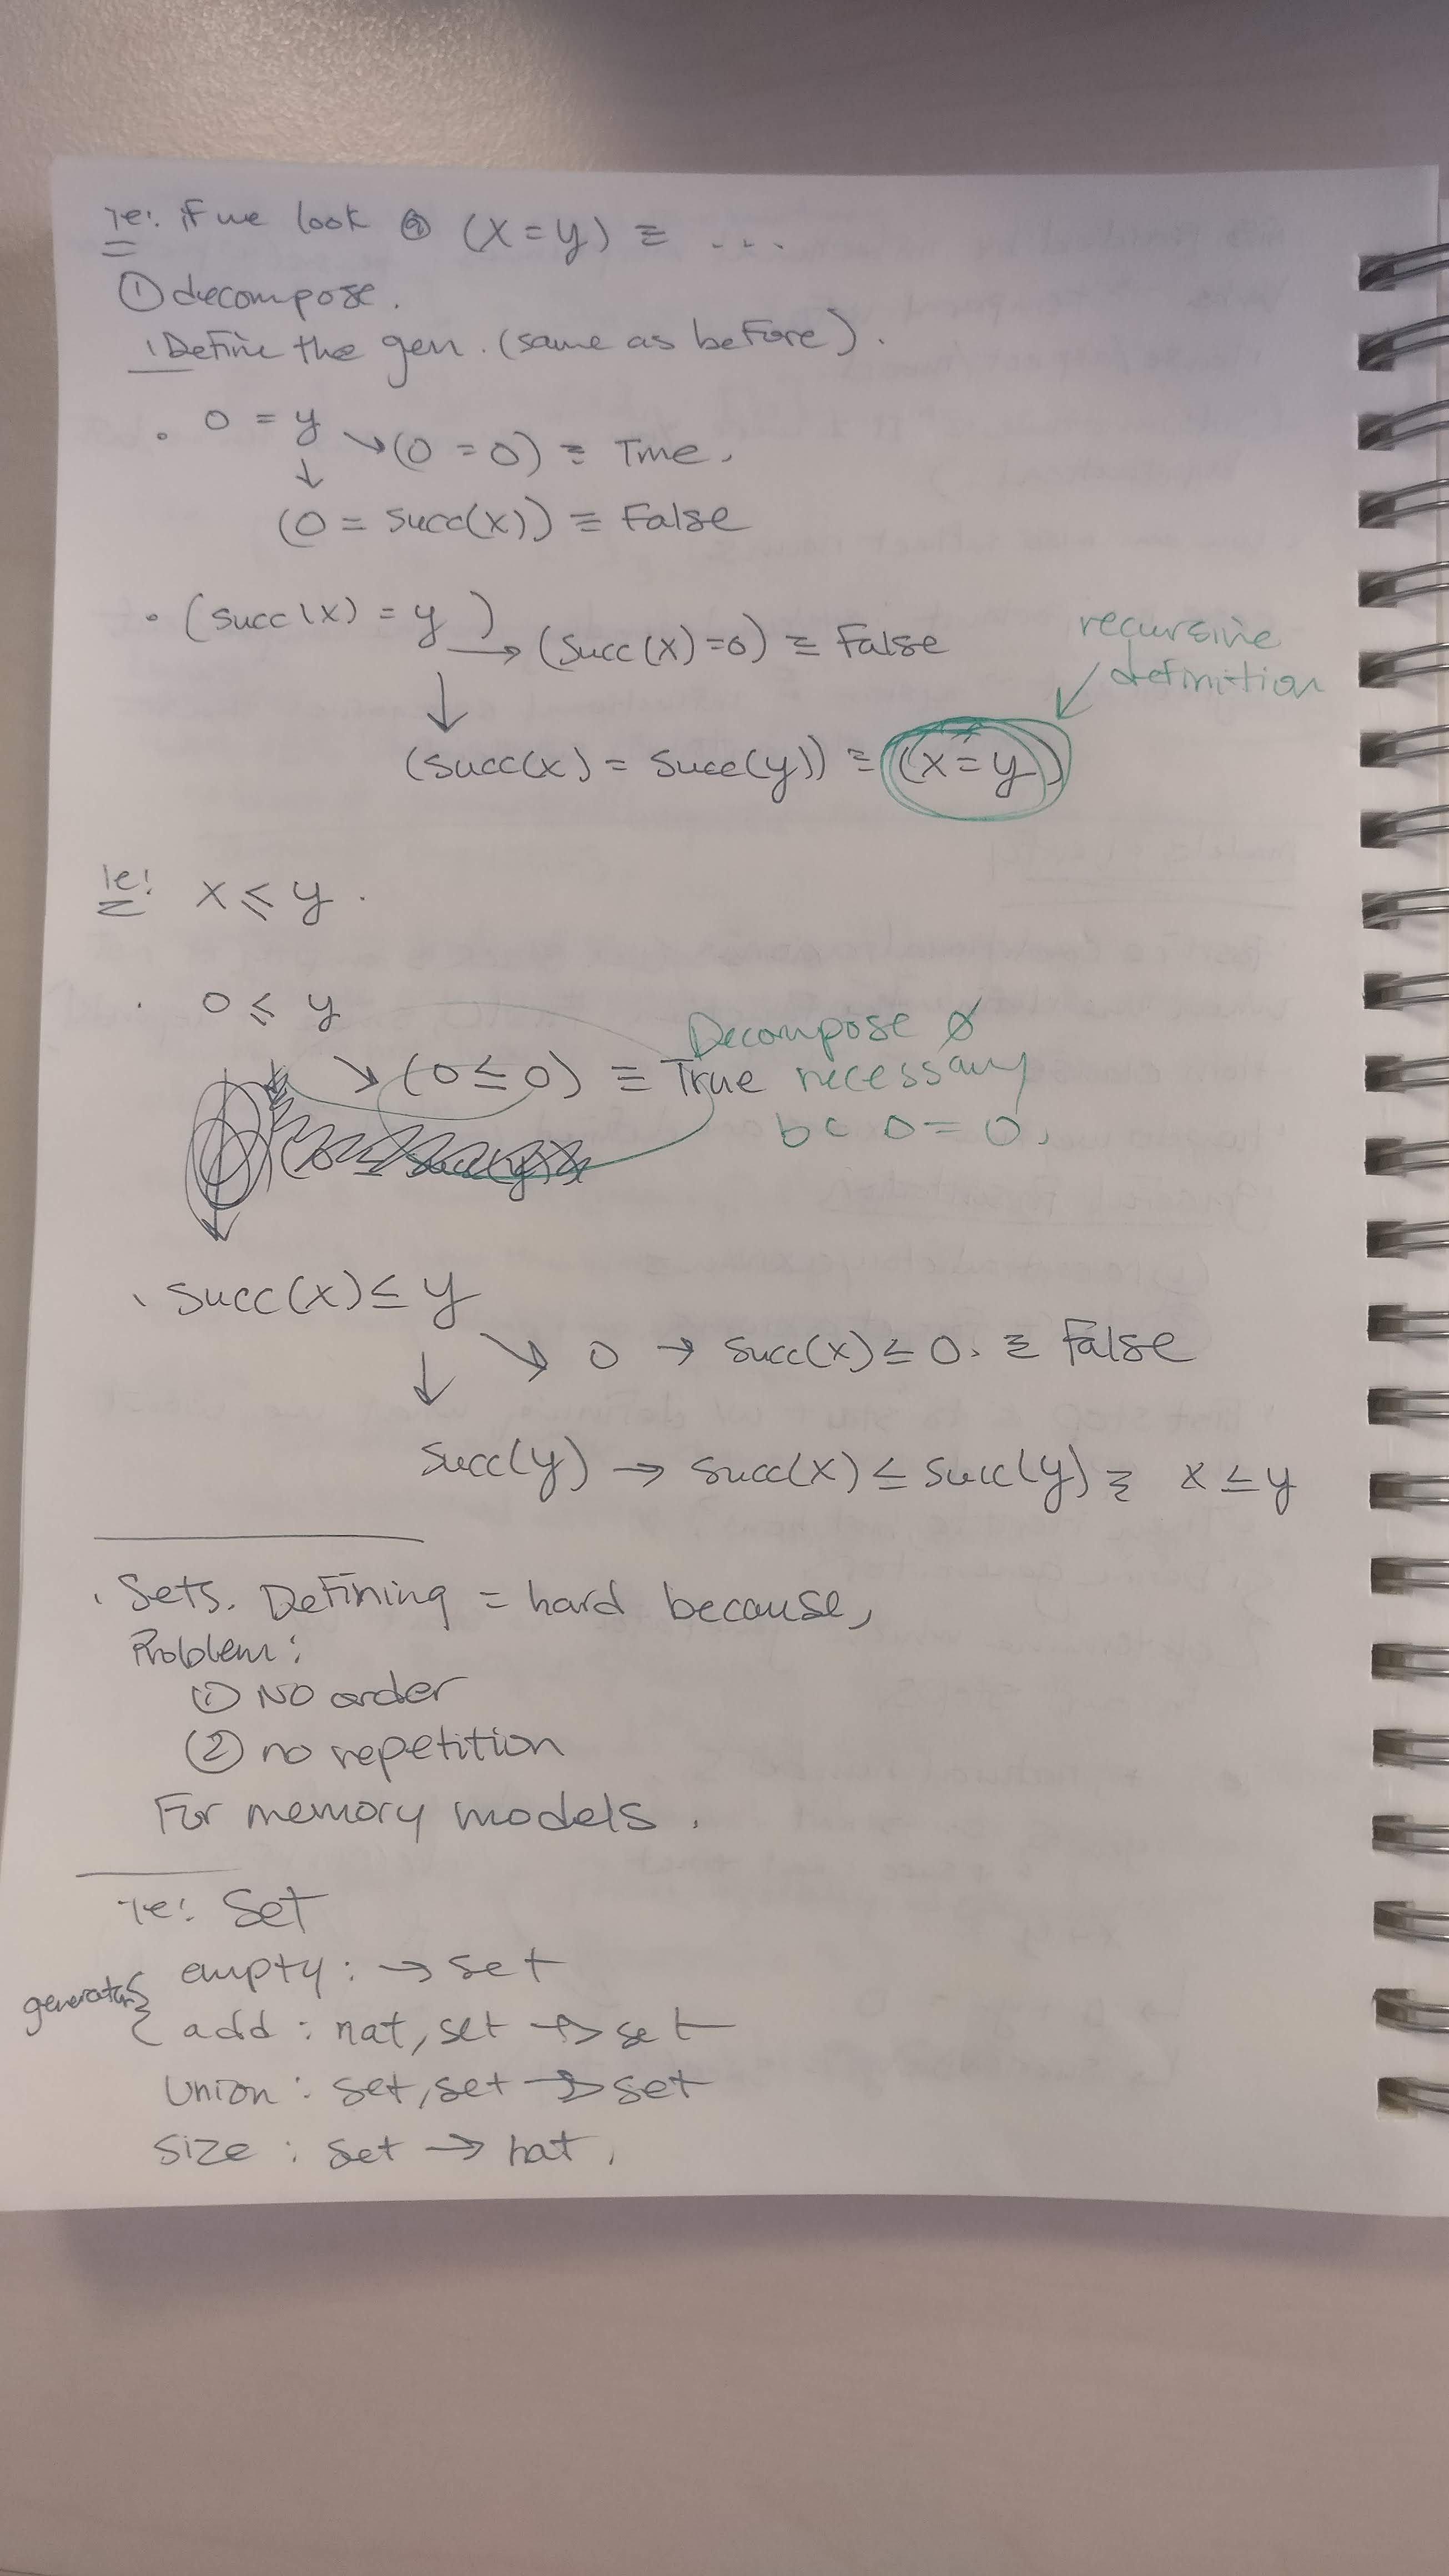 ie: if we look @ (x = y) ≡ ...
① decompose.
Define the gen. (same as before).
• 0 = y ↘ (0 = 0) ≡ True.
↓
(0 = succ(x)) ≡ False
• (succ(x) = y) → (succ(x) = 0) ≡ False
recursive
definition
↓
(succ(x) = succ(y)) ≡ (x = y)
ie: x ≤ y.
• 0 ≤ y
Decompose ∅
↘ (0 ≤ 0) ≡ True
necessary
bc 0 = 0.
• succ(x) ≤ y
↘ 0 → succ(x) ≤ 0. ≡ False
↓
succ(y) → succ(x) ≤ succ(y) ≡ x ≤ y
• Sets. Defining = hard because,
Problem:
① No order
② no repetition
For memory models.
ie: Set
empty: → set
generators {
add: nat, set → set
union: set, set → set
size: set → nat.